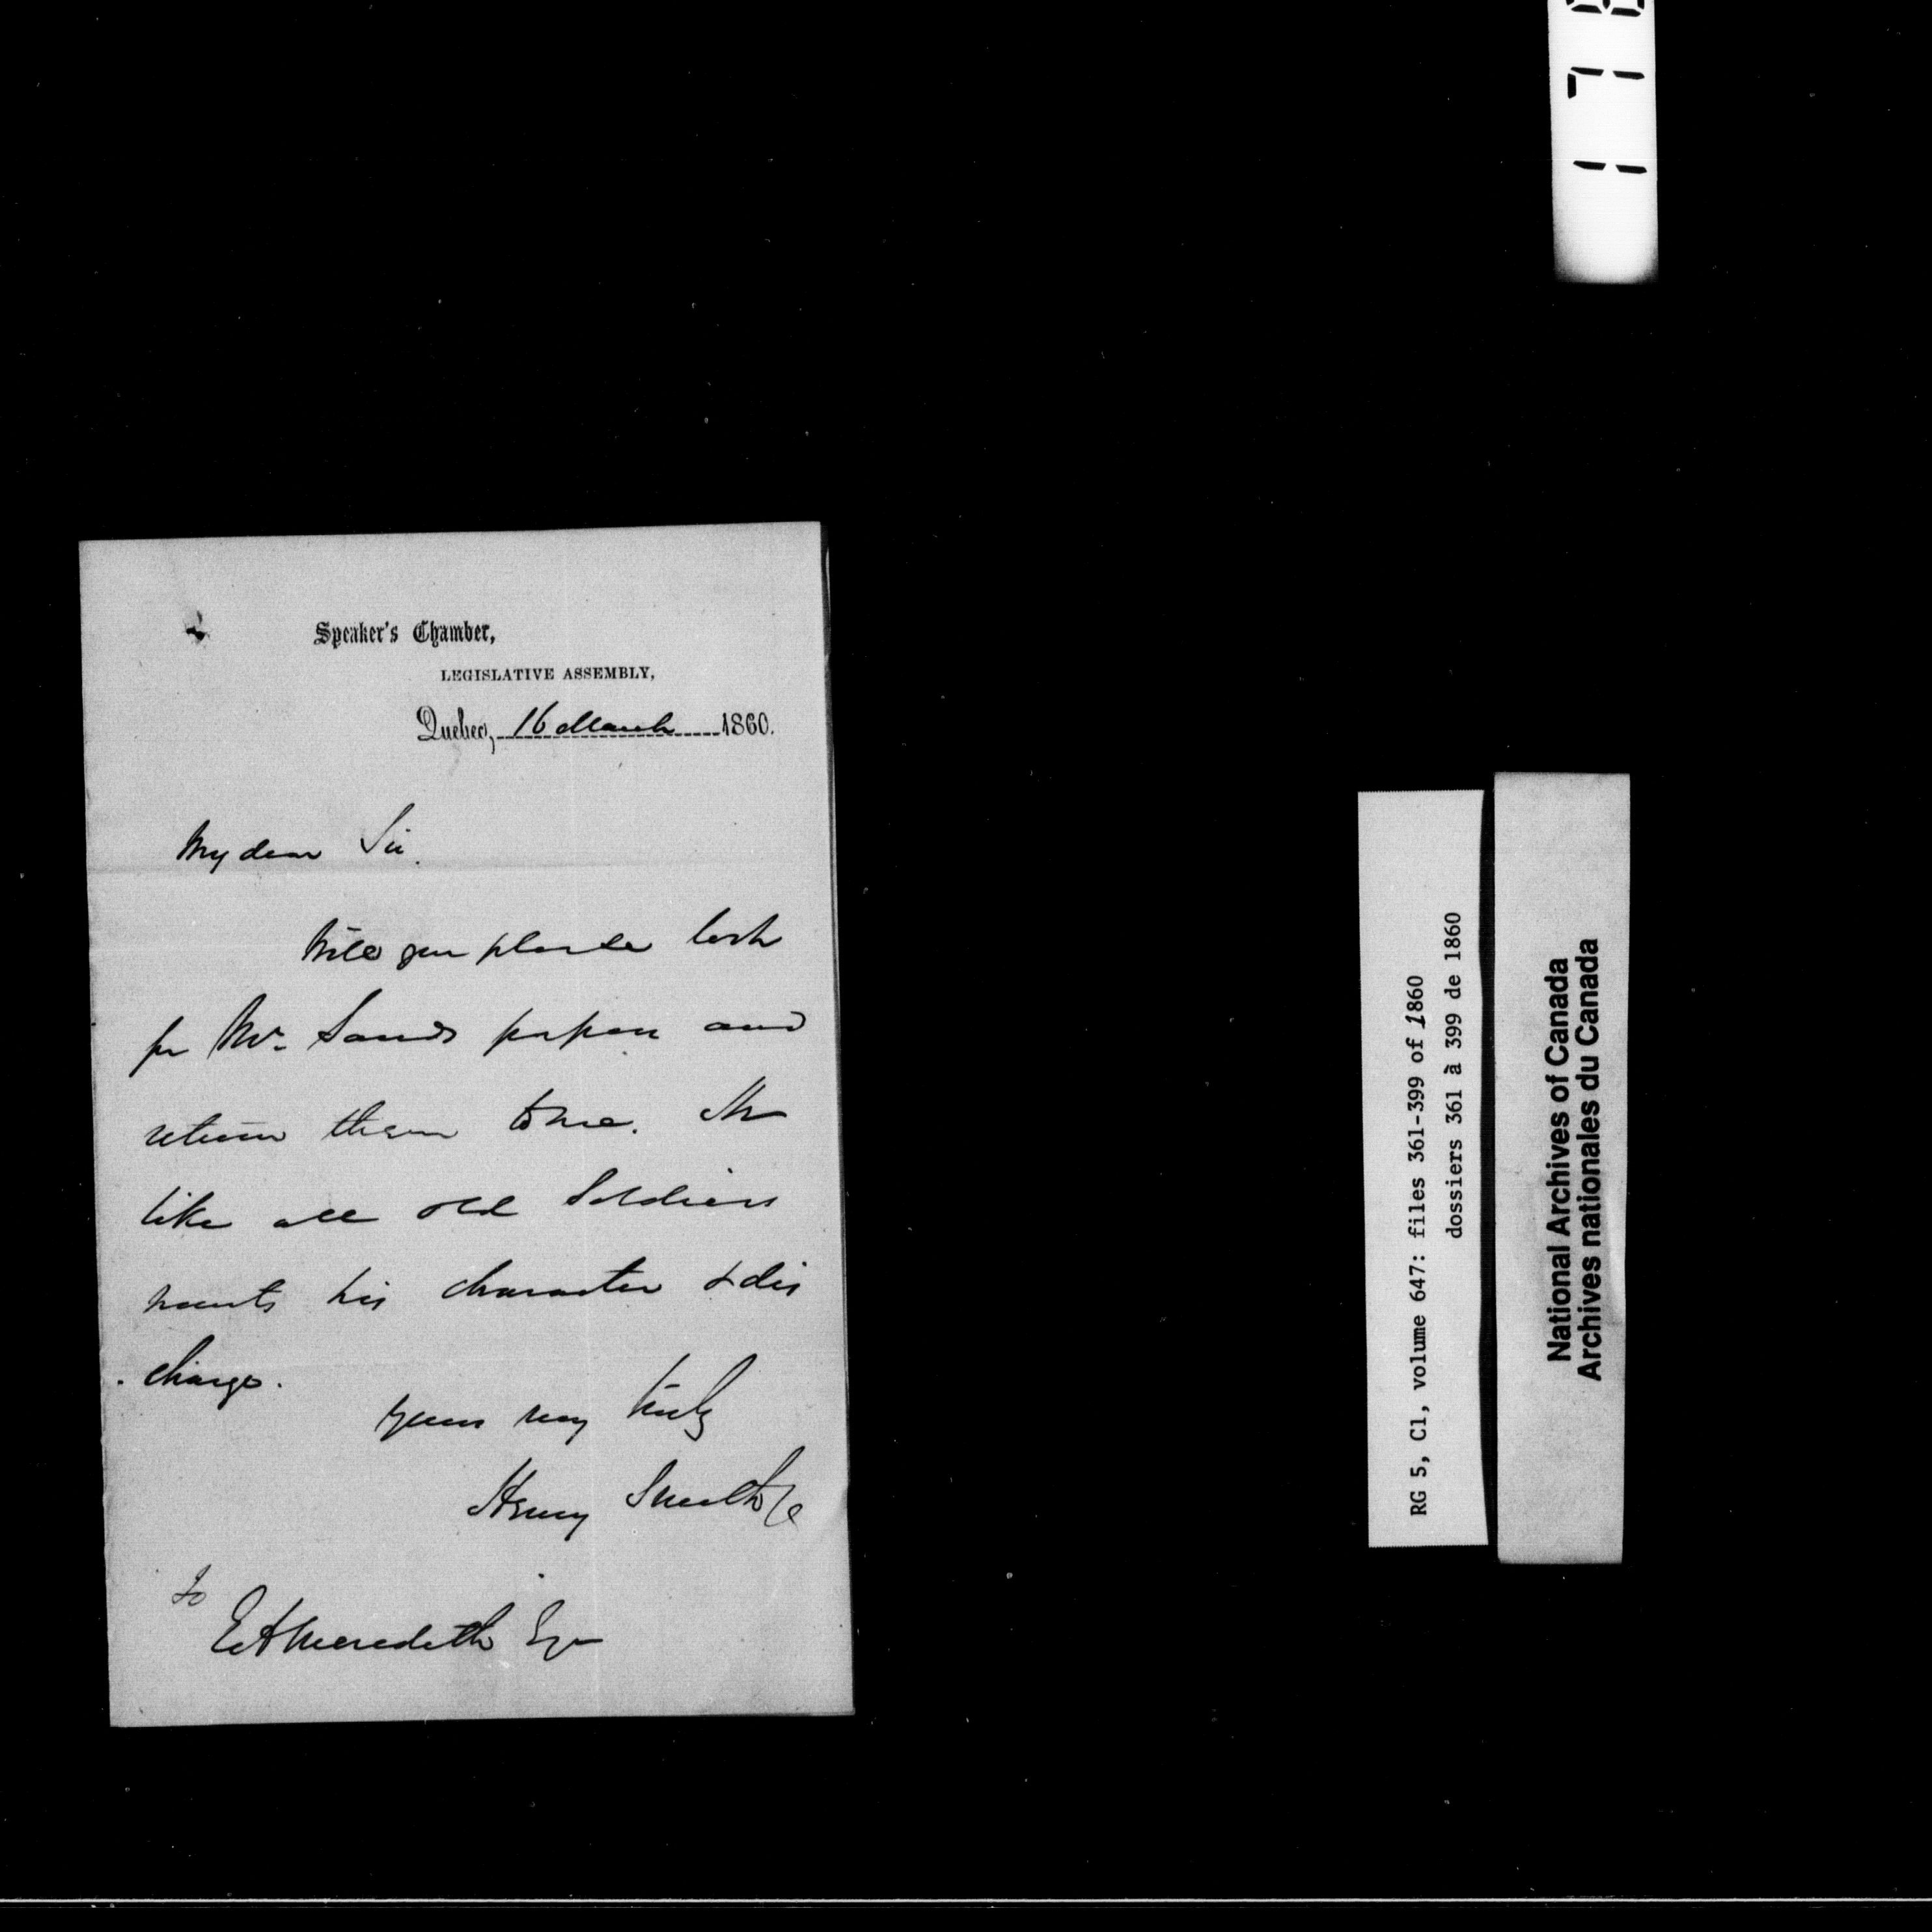 Speaker's Chamber,
LEGISLATIVE ASSEMBLY,
Quebec, 16 March 1860.
My dear Sir.
Will you please look
for Mr. Sands papers and
return them to me. He
like all old Soldiers
wants his character & dis
charge.
Yours very truly
Henry Smith
To
E A Meredith Esq
RG 5, C1, volume 647: files 361-399 of 1860
dossiers 361 à 399 de 1860
National Archives of Canada
Archives nationales du Canada